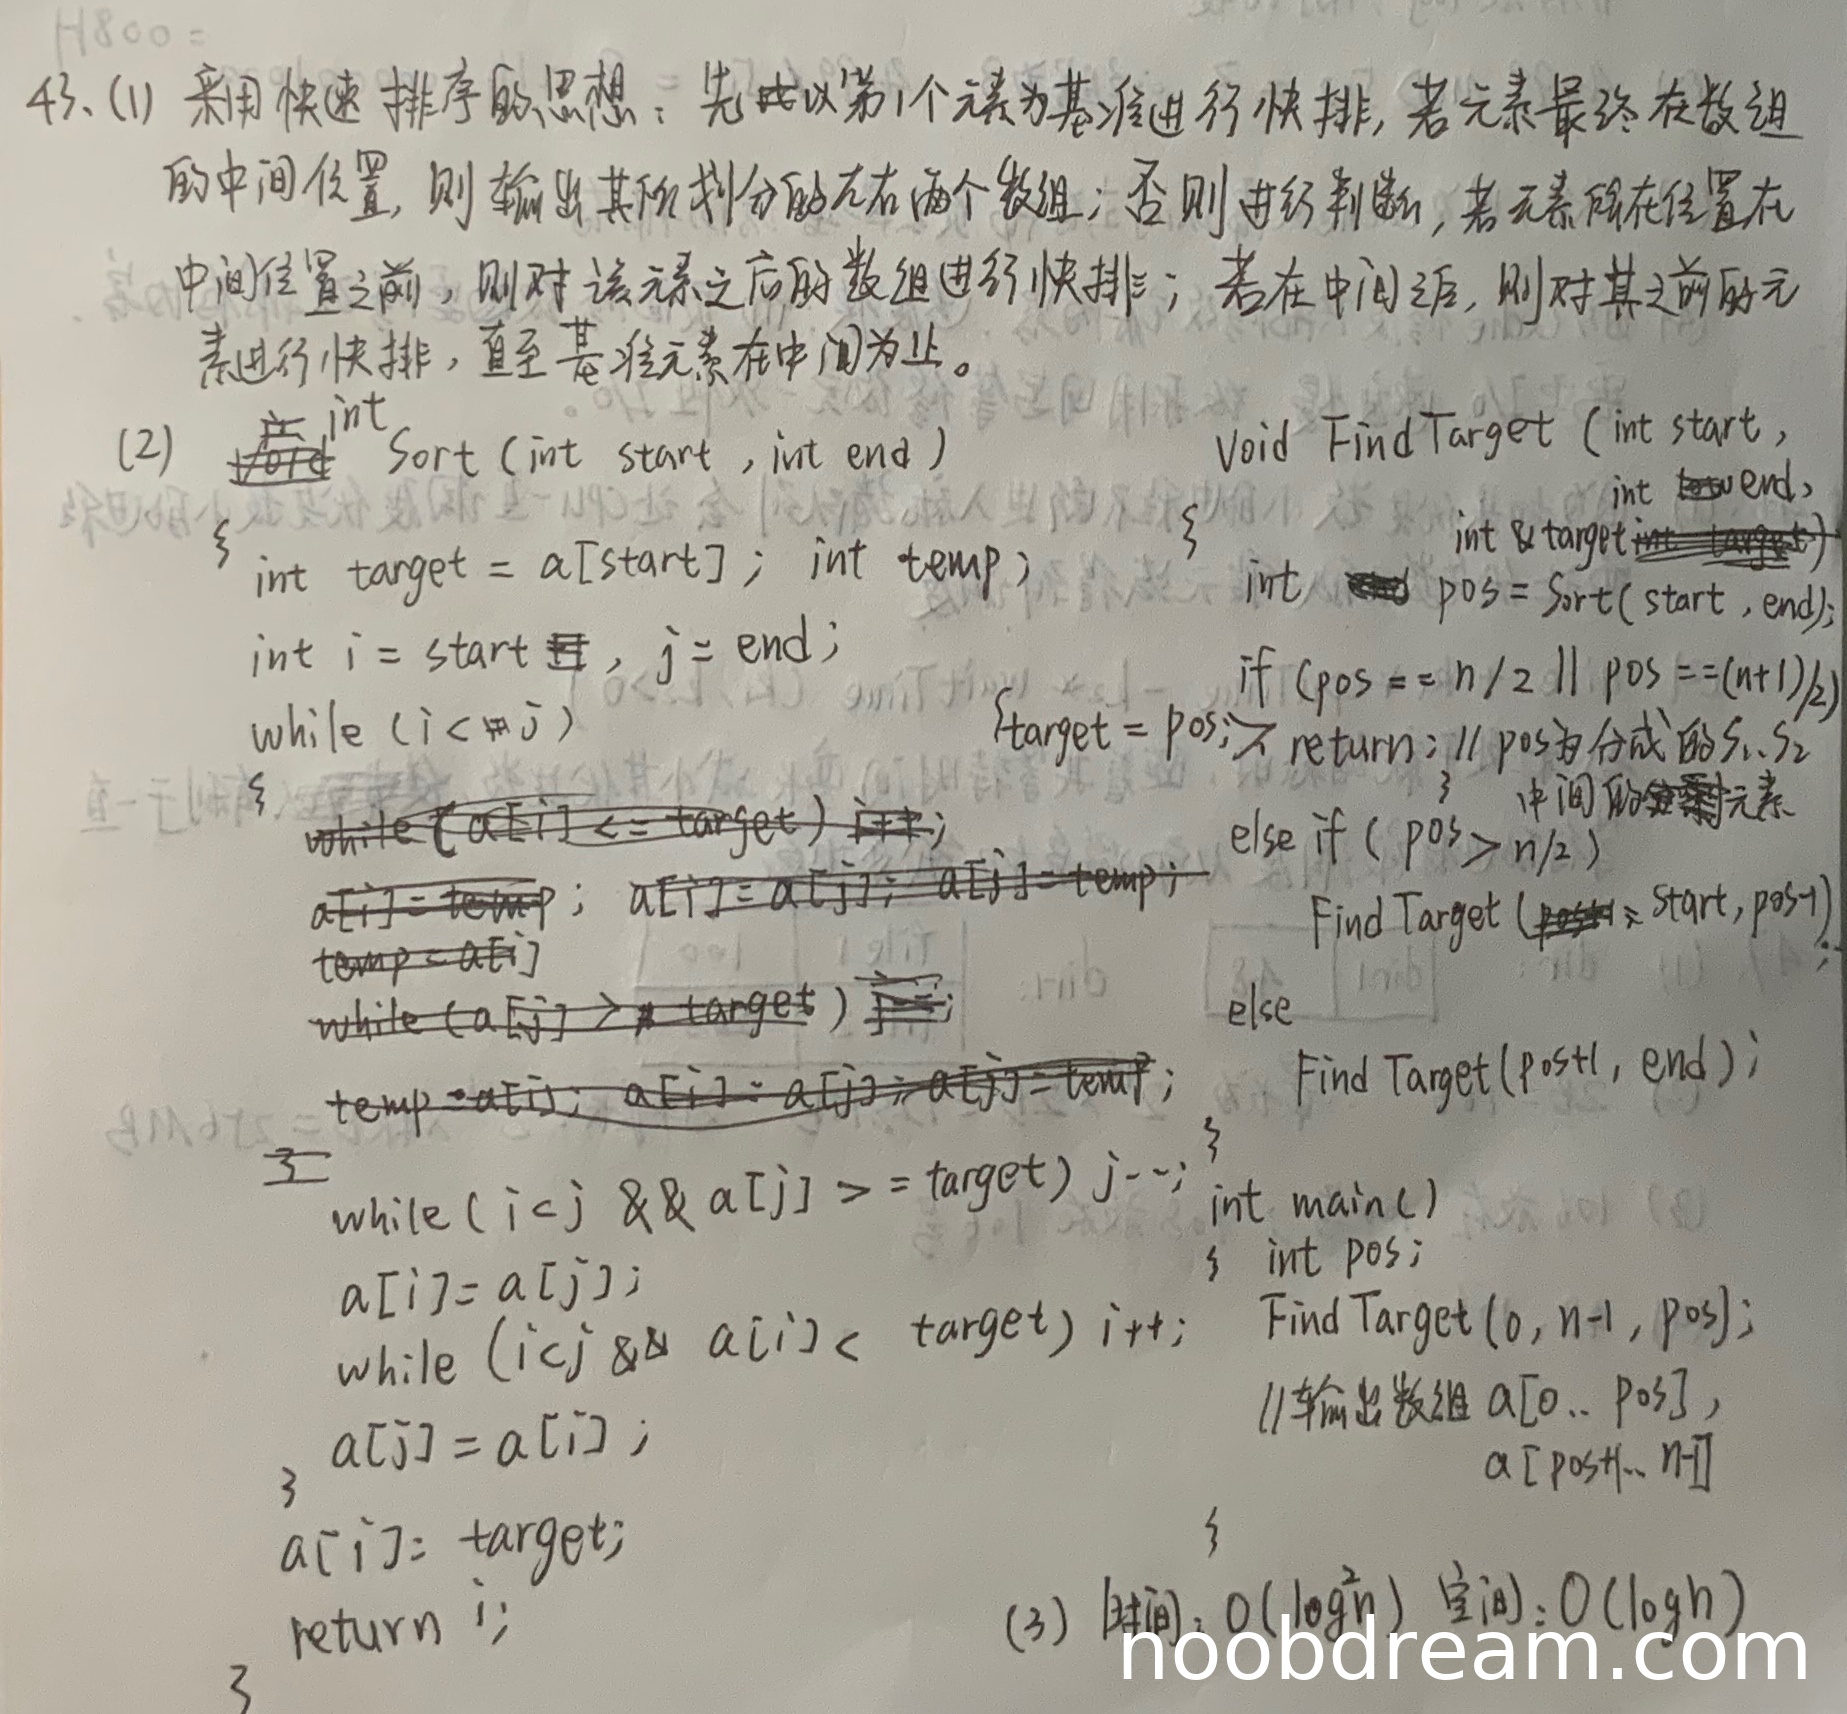 43、(1) 采用快速排序的思想：先以第1个元素为基准进行快排，若元素最终在数组
的中间位置，则输出其所划分的左右两个数组；否则进行判断，若元素所在位置在
中间位置之前，则对该元素之后的数组进行快排；若在中间之后，则对其之前的元
素进行快排，直至基准元素在中间为止。
(2) int Sort (int start , int end)
{
int target = a[start]; int temp;
int i = start , j = end;
while (i < j)
{
while ( a[i] <= target) i++;
a[i] = temp; a[i] = a[j]; a[j] = temp;
temp = a[i]
while (a[j] > target) j--;
temp = a[i]; a[i] = a[j]; a[j] = temp;
}
while ( i<j && a[j] >= target) j--;
a[i] = a[j];
while (i<j && a[i] < target) i++;
a[j] = a[i];
}
a[i] = target;
return i;
}
void FindTarget (int start,
int end,
int & target int target)
{
int pos = Sort( start , end);
if (pos == n/2 || pos ==(n+1)/2)
{target = pos; return; // pos为分成的S1、S2
} 中间的元素
else if ( pos > n/2)
FindTarget ( start, pos-1)
;
else
Find Target( pos+1, end);
}
int main()
{ int pos;
FindTarget(0, n-1, pos);
//输出数组 a[0.. pos],
a[pos+1.. n-1]
}
(3) 时间：O(log²n) 空间：O(logn)
noobdream.com